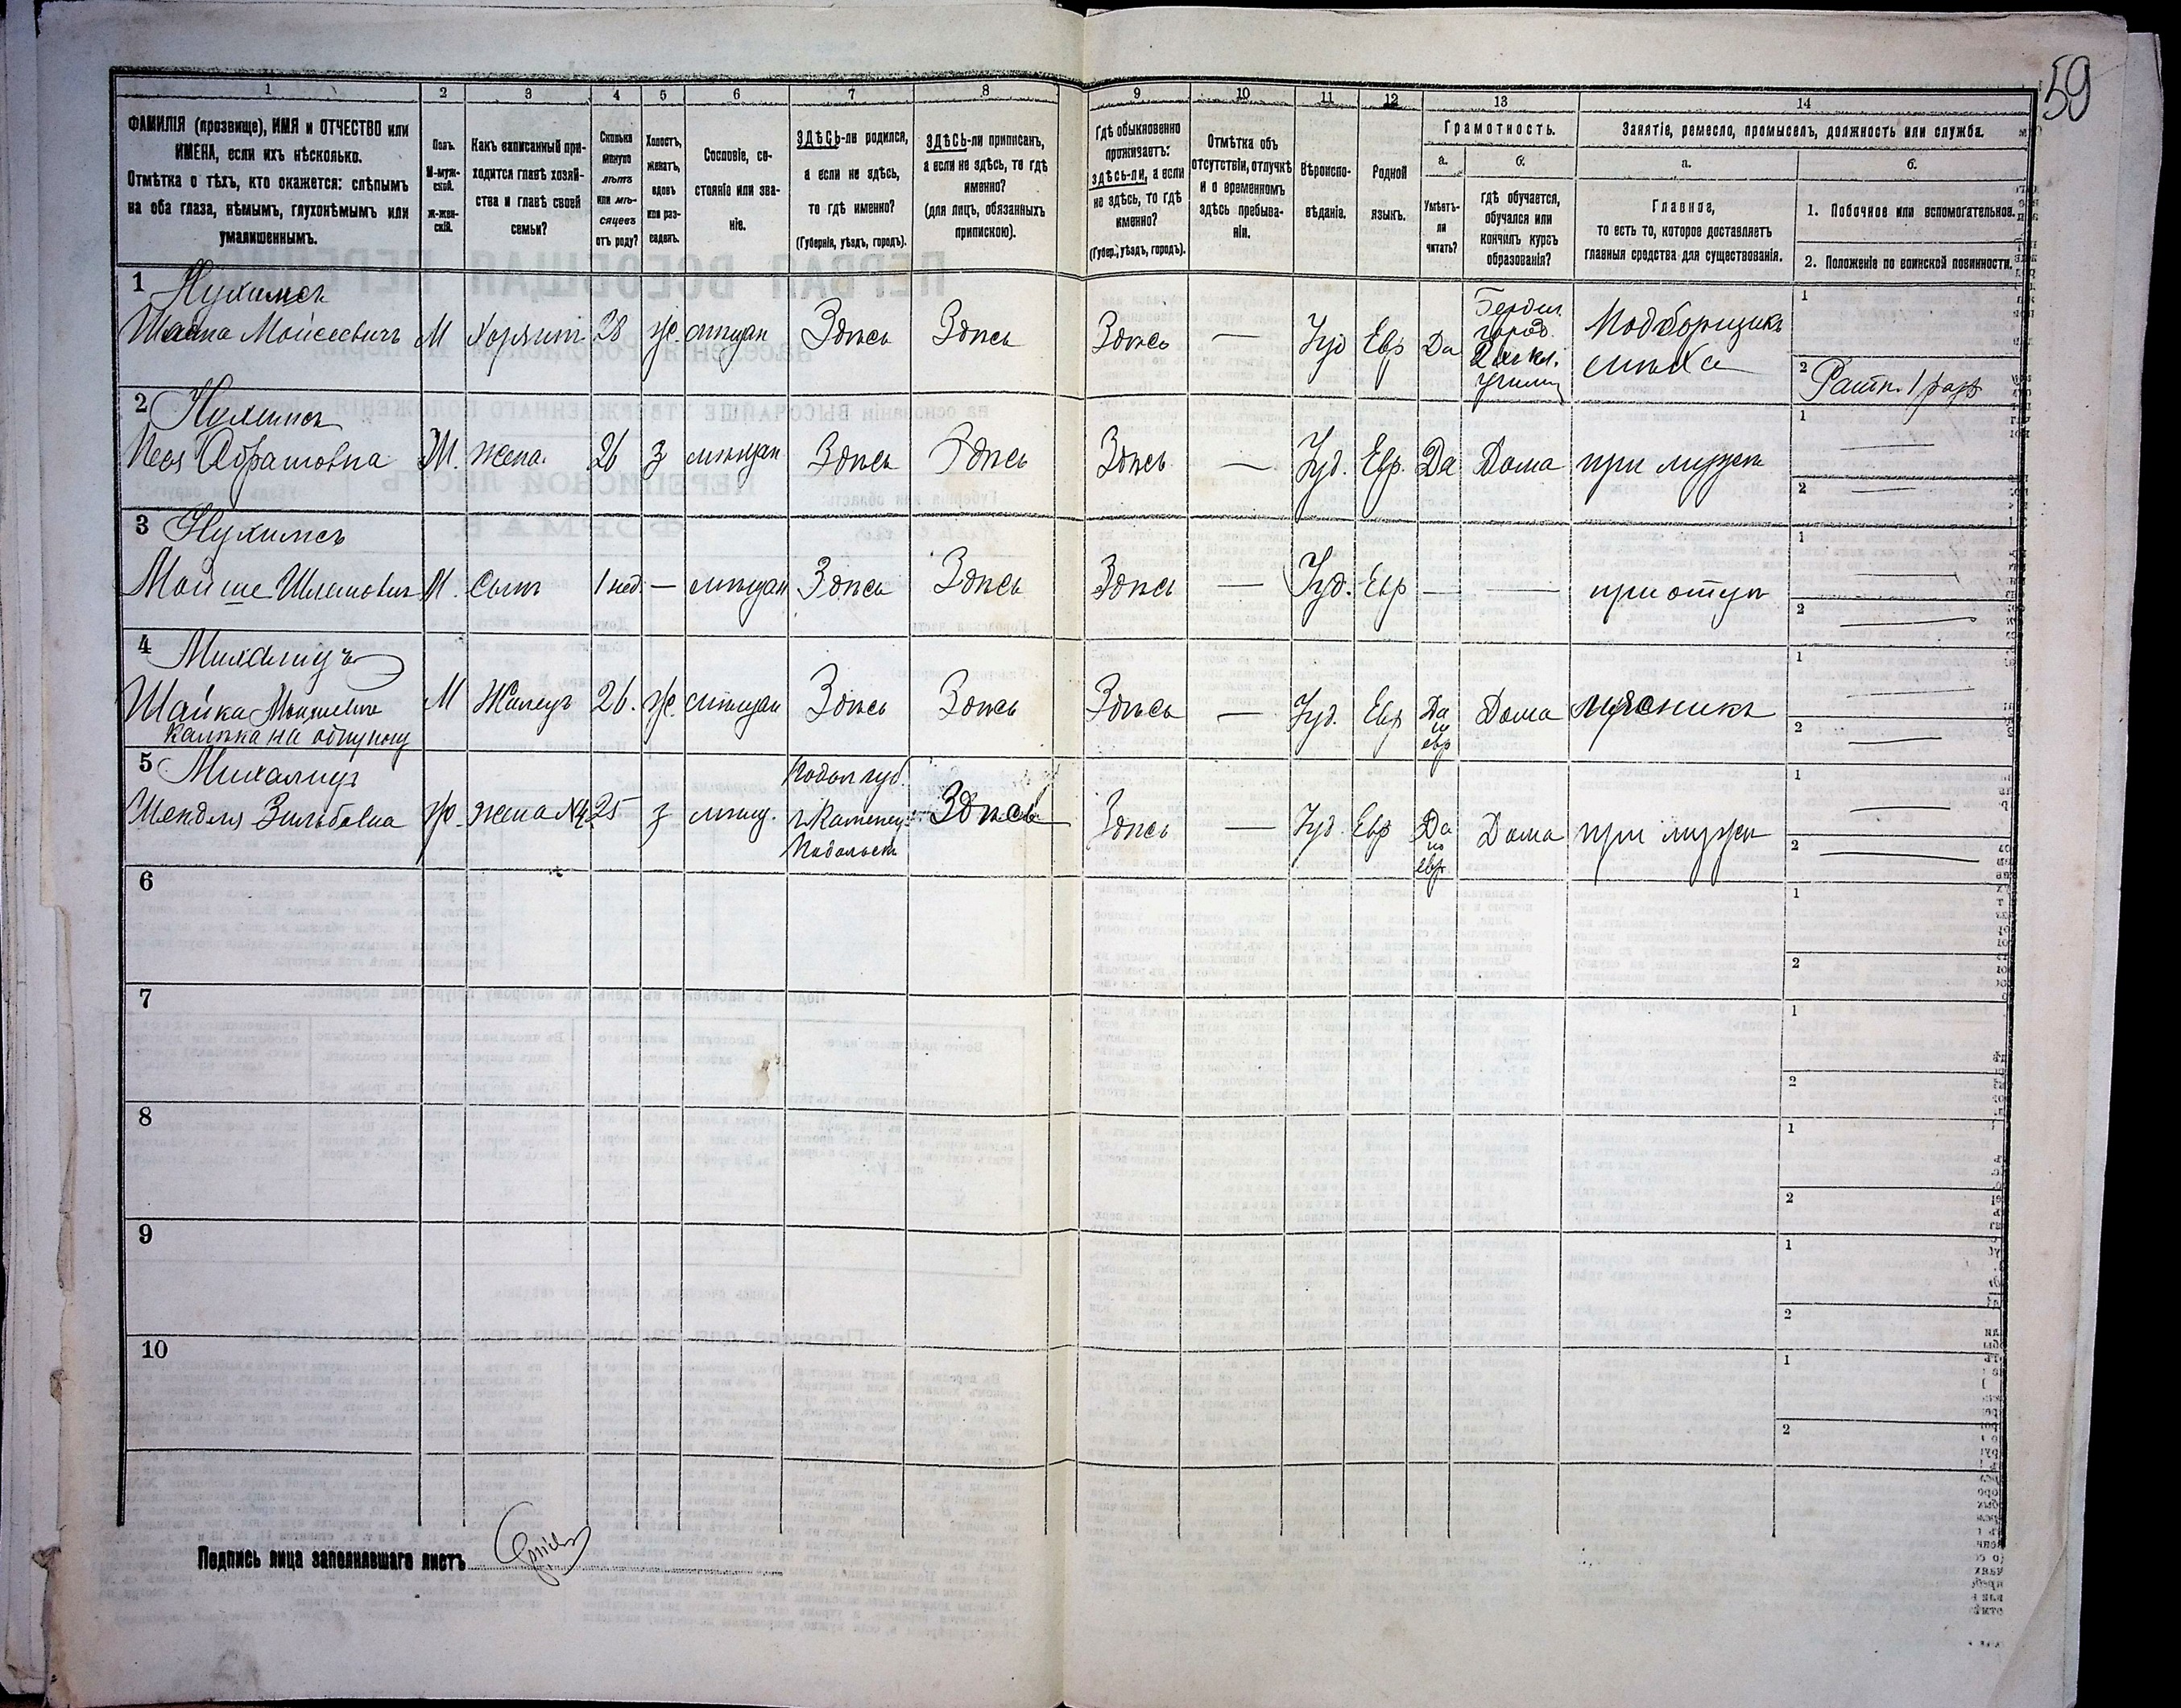 59
1 2 3 4 5 6 7 8 9 10 11 12 13 14
ФАМИЛІЯ (прозвище), ИМЯ и ОТЧЕСТВО или
ИМЕНА, если ихъ нѣсколько.
Отмѣтка о тѣхъ, кто окажется: слѣпымъ
на оба глаза, нѣмымъ, глухонѣмымъ или
умалишеннымъ.
Полъ.
М-муж-
ской.
ж-жен-
скій.
Какъ записанный при-
ходится главѣ хозяй-
ства и главѣ своей
семьи?
Сколько
минуло
лѣтъ
или мѣ-
сяцевъ
отъ роду?
Холостъ,
женатъ,
вдовъ
или раз-
веденъ.
Сословіе, со-
стояніе или зва-
ніе.
ЗДѢСЬ-ли родился,
а если не здѣсь,
то гдѣ именно?
(Губернія, уѣздъ, городъ).
ЗДѢСЬ-ли приписанъ,
а если не здѣсь, то гдѣ
именно?
(для лицъ, обязанныхъ
припискою).
Гдѣ обыкновенно
проживаетъ:
здѣсь-ли, а если
не здѣсь, то гдѣ
именно?
(Губер., уѣздъ, городъ).
Отмѣтка объ
отсутствіи, отлучкѣ
и о временномъ
здѣсь пребыва-
ніи.
Вѣроиспо-
вѣданіе.
Родной
языкъ.
Грамотность.
а.
Умѣетъ-
ли
читать?
б.
гдѣ обучается,
обучался или
кончилъ курсъ
образованія?
Занятіе, ремесло, промыселъ, должность или служба.
а.
Главное,
то есть то, которое доставляетъ
главныя средства для существованія.
б.
1. Побочное или вспомогательное.
2. Положеніе по воинской повинности.
1 Нухимсъ
Моисеевичъ М Хозяинъ 28 ж. мѣщан Здѣсь Здѣсь Здѣсь — Іуд Евр Да
Бердич.
город.
2х кл.
училищ
Подборщикъ
мѣха
1
2 Ратн. 1 разр
2 Нухимсъ
Песя Абрамовна жена. 26 з мѣщан Здѣсь Здѣсь Здѣсь — Іуд. Евр. Да Дома при мужѣ
1 —
2 —
3 Нухимсъ
Мойше Шлемовичъ М. Сынъ 1 нед. — мѣщан Здѣсь Здѣсь Здѣсь — Іуд. Евр — — при отцѣ
1 —
2 —
4 Михалицъ
Шайка М Жилецъ 26. ж. мѣщан Здѣсь Здѣсь Здѣсь — Іуд. Евр Да по евр Дома мясникъ
Калѣка на одну ногу
1 —
2 —
5 Михалицъ
Шендля ж. жена №4. 25 з мѣщ. Подол губ.
г. Каменец
Подольск
Здѣсь Здѣсь — Іуд Евр Да по евр Дома при мужѣ
1 —
2 —
6
1
2
7
1
2
8
1
2
9
1
2
10
1
2
Подпись лица заполнявшаго листъ